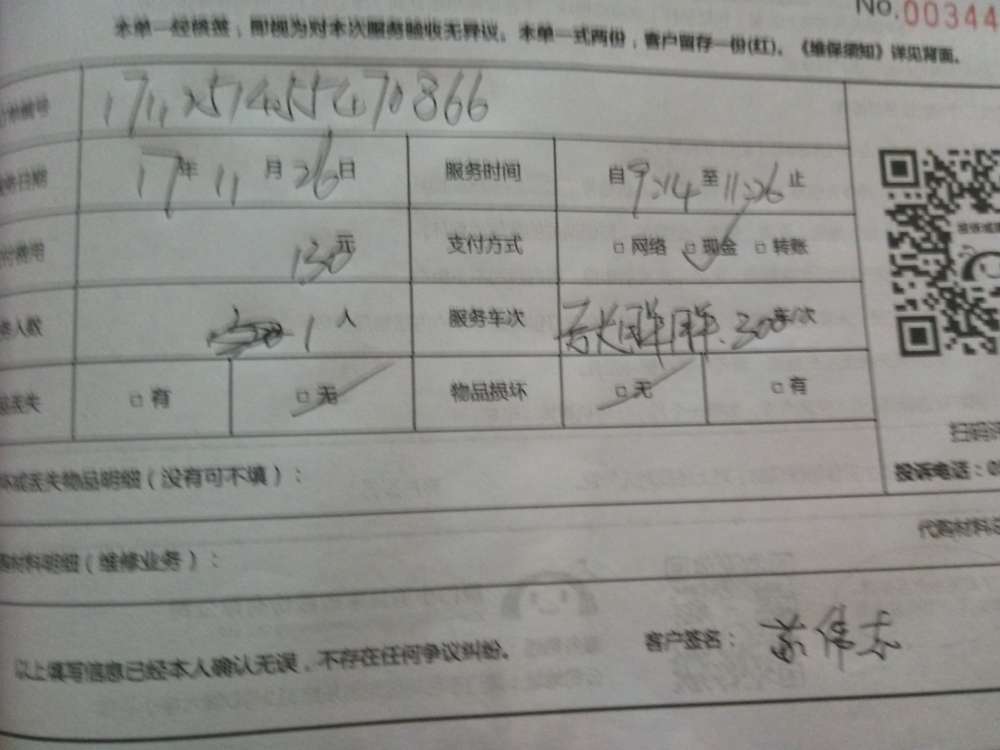 No.00344
本单一经核签，即视为对本次服务验收无异议。本单一式两份，客户留存一份(红)。《维保须知》详见背面。
编号
日期 17年11月26日 服务时间 自9:14至11:26止
费用 130元 支付方式 □网络 □现金 □转账
人数 1人 服务车次 车/次
丢失 □有 □无 物品损坏 □无 □有
扫码
投诉电话：0
坏或丢失物品明细（没有可不填）：
代购材料
材料明细（维修业务）：
以上填写信息已经本人确认无误，不存在任何争议纠纷。
客户签名：苏伟志